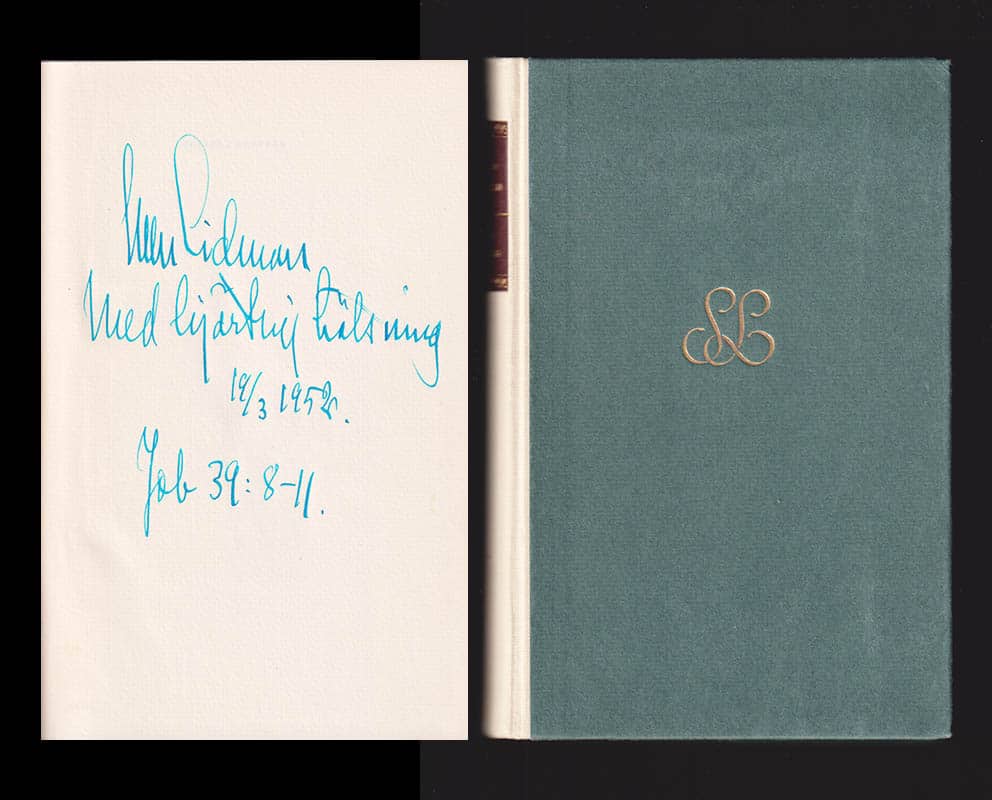 Sven Lidman
Med hjärtlig hälsning
19/3 1952.
Job 39: 8-11.
SL